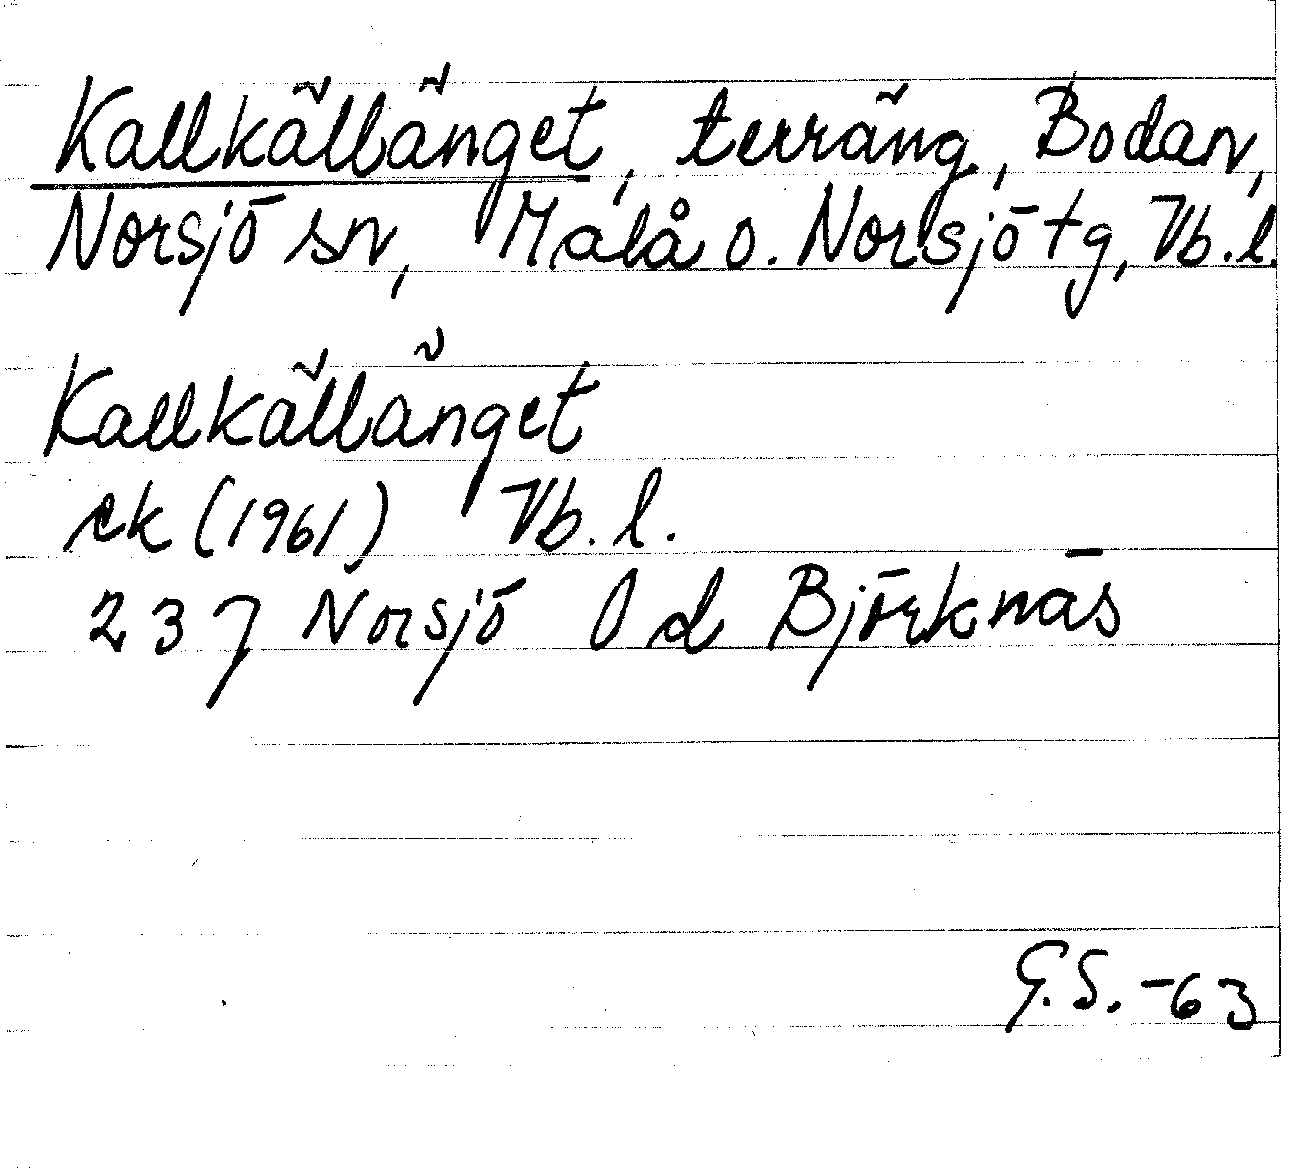 Kallkälländget, terräng, Bodan,
Norsjö sn, Malå o. Norsjö tg, Vb.l.
Kallkällänget
ek (1961) Vb. l.
237 Norsjö 0 d Björknäs
G.S. -63